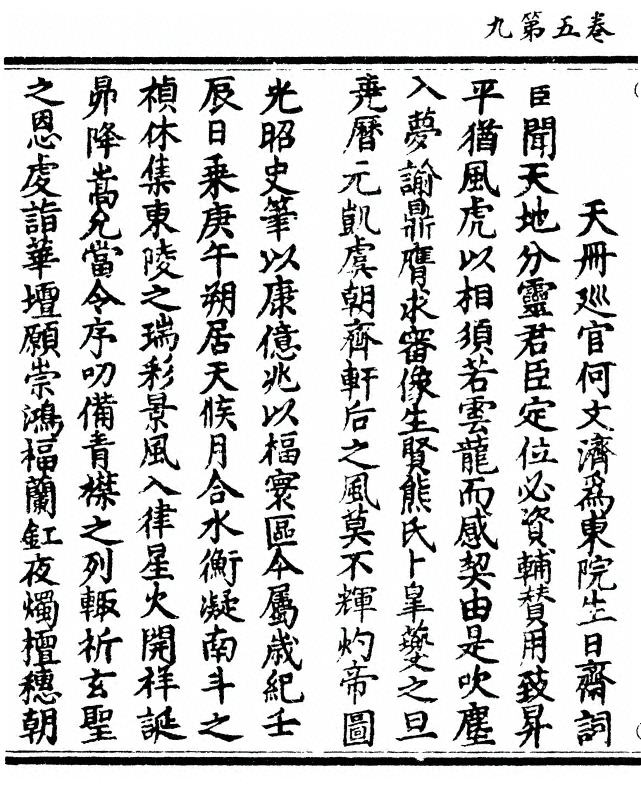 卷五第九
天冊廵官何文濟爲東院生日齋詞
臣聞天地分靈君臣定位必資輔賛用致昇
平猶風虎以相須若雲龍而感契由是吹塵
入夢諭鼎膺求審像生賢熊氏卜臯夔之旦
堯曆元凱虞朝齊軒后之風莫不輝灼帝圖
光昭史筆以康億兆以福寰區今屬歳紀壬
辰日乗庚午朔居天候月合水衡凝南斗之
禎休集東陵之瑞彩景風入律星火開祥誕
昴降嵩允當令序叨備青襟之列輙祈玄聖
之恩虔詣華壇願崇鴻福蘭釭夜燭檀穗朝